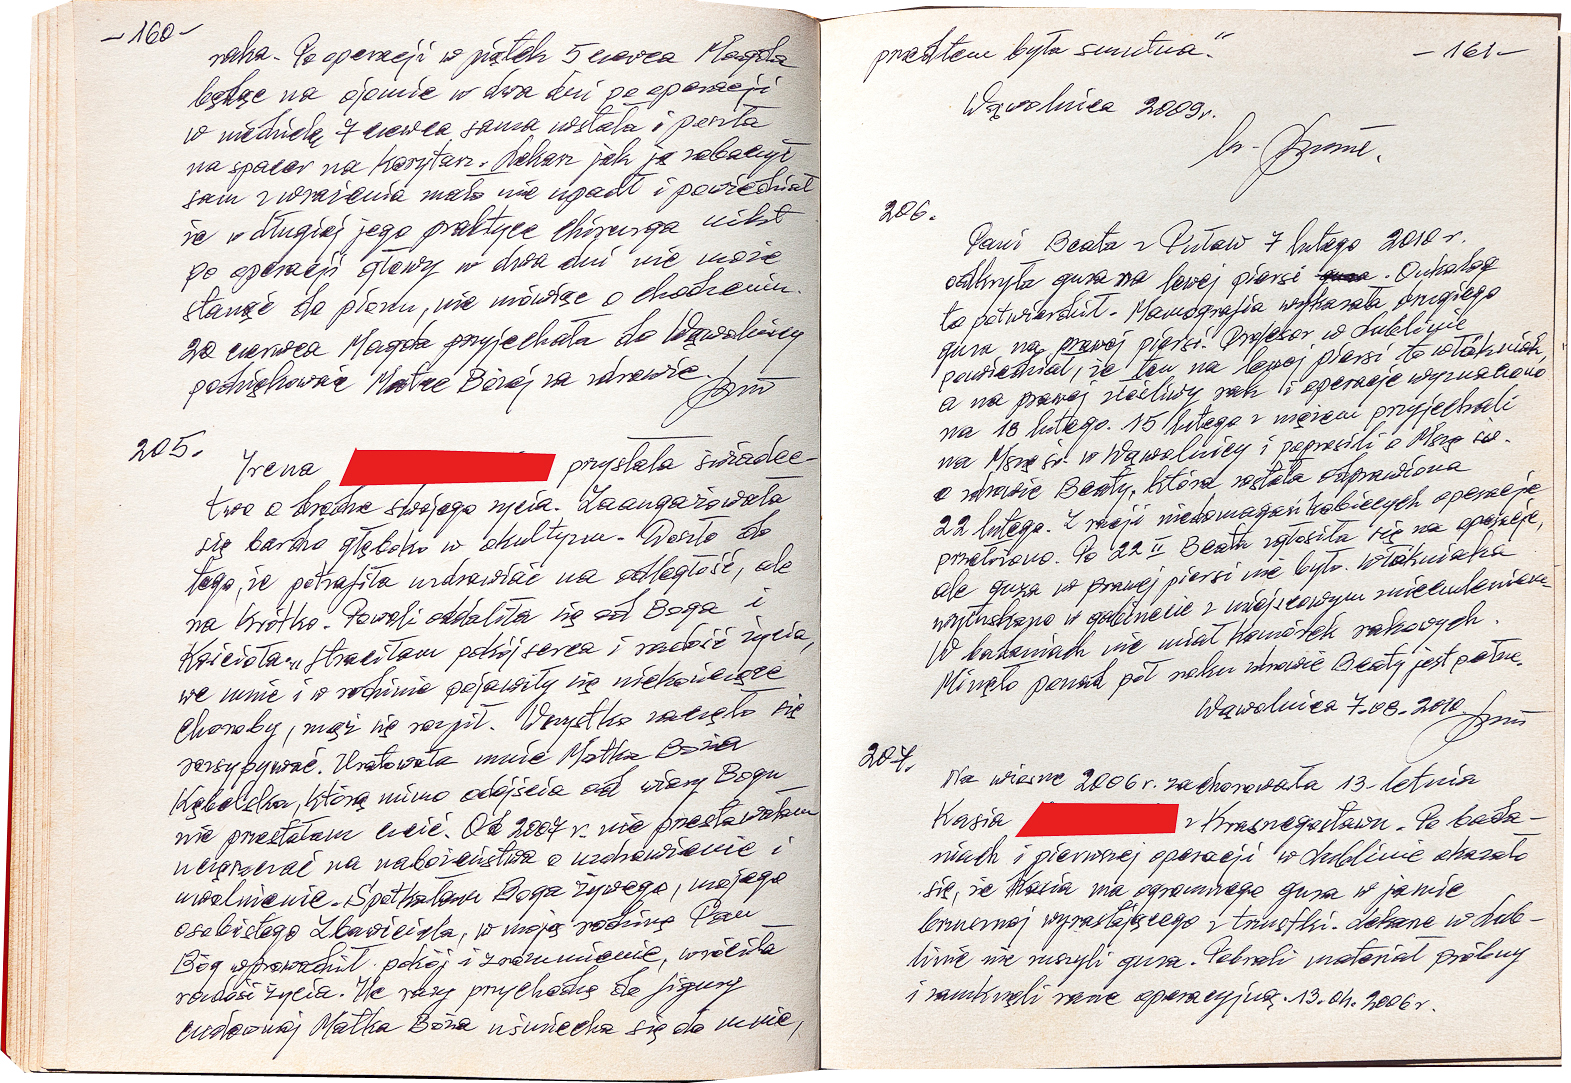 - 160 -
raka. Po operacji w piątek 5 czerwca Magda
będąc na ojomie w dwa dni po operacji
w niedzielę 7 czerwca sama wstała i poszła
na spacer na korytarz. Lekarz jak ją zobaczył
sam z wrażenia mało nie upadł i powiedział
że w długiej jego praktyce chirurga nikt
po operacji głowy w dwa dni nie może
stanąć do pionu, nie mówiąc o chodzeniu.
20 czerwca Magda przyjechała do Wąwolnicy
podziękować Matce Bożej za zdrowie.
205.
Irena przysłała świadec-
two o drodze swojego życia. Zaangażowała
się bardzo głęboko w okultyzm. Doszło do
tego, że potrafiła uzdrawiać na odległość, ale
na krótko. Powoli oddaliła się od Boga i
Kościoła. „Straciłam pokój serca i radość życia,
we mnie i w rodzinie pojawiły się niekończące
choroby, mąż się rozpił. Wszystko zaczęło się
rozsypywać. Uratowała mnie Matka Boża
Kębelska, którą mimo odejścia od wiary Bogu
nie przestałam czcić. Od 2007 r. nie przestawałam
uczęszczać na nabożeństwa o uzdrowienie i
uwolnienie. Spotkałam Boga żywego, mojego
osobistego Zbawiciela, w moją rodzinę Pan
Bóg wprowadził pokój i zrozumienie, wróciła
radość życia. Ile razy przychodzę do figury
cudownej Matka Boża uśmiecha się do mnie,
- 161 -
przedtem była smutna".
Wąwolnica 2009r.
206.
Pani Beata z Puław 7 lutego 2010 r.
odkryła guza na lewej piersi guza. Onkolog
to potwierdził. Mamografia wykazała drugiego
guza na prawej piersi. Profesor w Lublinie
powiedział, że ten na lewej piersi to włókniak,
a na prawej złośliwy rak i operację wyznaczono
na 18 lutego. 15 lutego z mężem przyjechali
na Mszę św. w Wąwolnicy i poprosili o Mszę św.
o zdrowie Beaty, która została odprawiona
22 lutego. Z racji niedomagań kobiecych operację
przełożono. Po 22 II Beata zgłosiła się na operację,
ale guza w prawej piersi nie było. Włókniaka
wyłuskano w gabinecie z miejscowym znieczuleniem.
W badaniach nie miał komórek rakowych.
Minęło ponad pół roku zdrowie Beaty jest pełne.
Wąwolnica 7.08.2010
207.
Na wiosnę 2006 r. zachorowała 13-letnia
Kasia z Krasnegostawu. Po bada-
niach i pierwszej operacji w Lublinie okazało
się, że Kasia ma ogromnego guza w jamie
brzusznej wyrastającego z trzustki. Lekarze w Lub-
linie nie ruszyli guza. Pobrali materiał próbny
i zamknęli ranę operacyjną. 13.04.2006r.